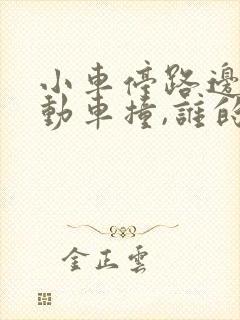 小車停路邊
動車撞,誰的
金正雲